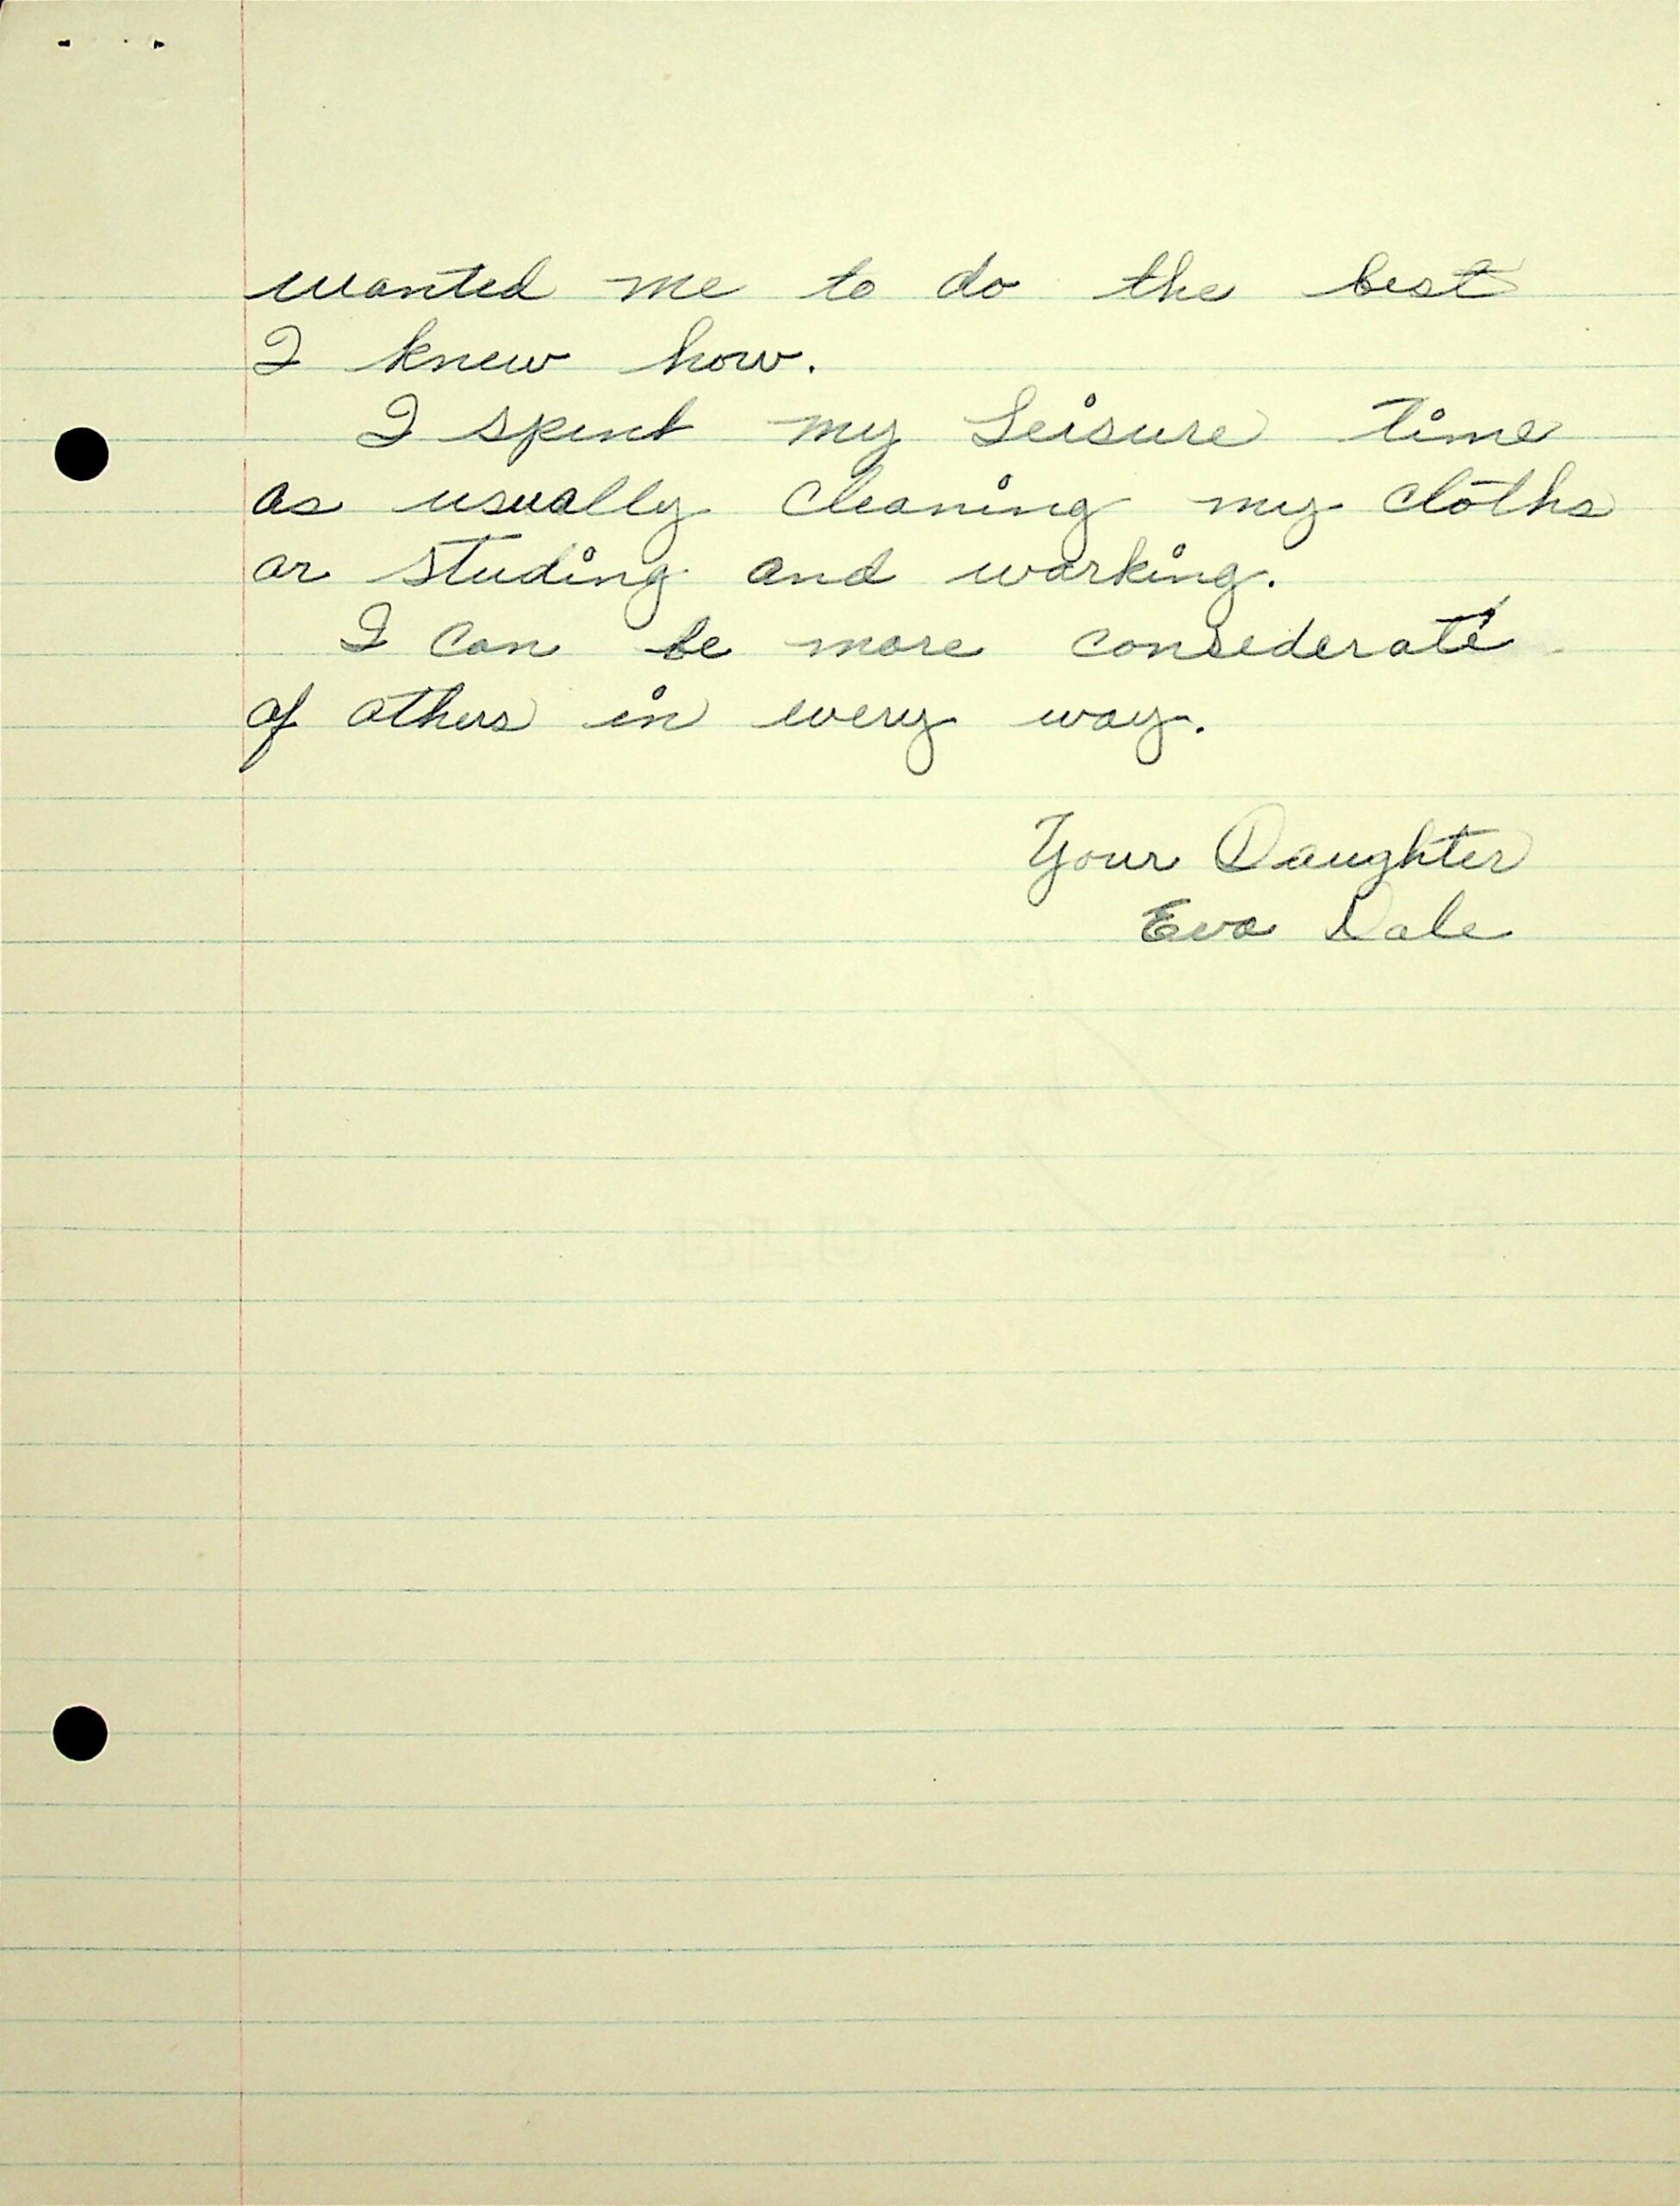 wanted me to do the best
I knew how.
I spent my Leisure time
as usually cleaning my cloths
or studing and working.
I can be more considerate
of others in every way.
Your Daughter
Eva Dale